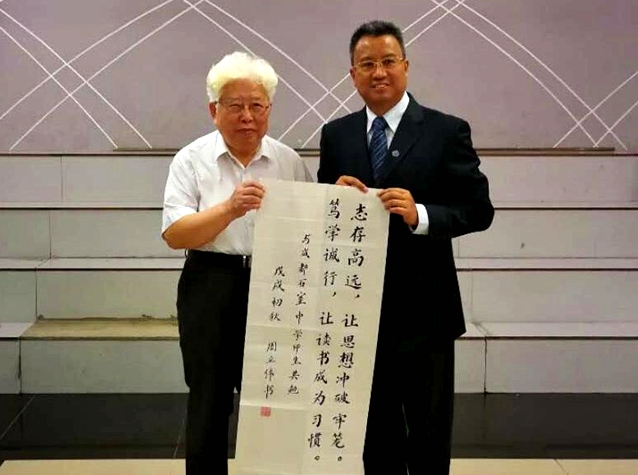 志存高远，让思想冲破牢笼。
笃学诚行，让读书成为习惯。
与成都石室中学师生共勉
戊戌初秋 周立伟书